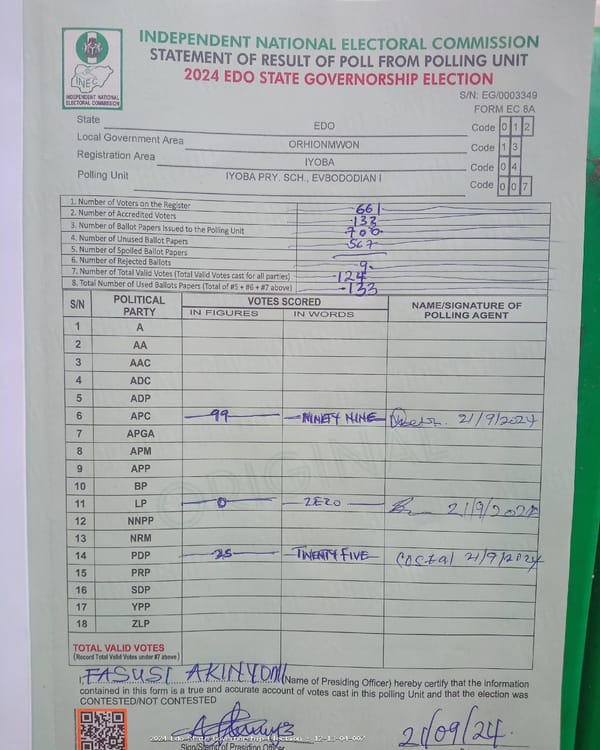 INDEPENDENT NATIONAL ELECTORAL COMMISSION
STATEMENT OF RESULT OF POLL FROM POLLING UNIT
2024 EDO STATE GOVERNORSHIP ELECTION
INEC
INDEPENDENT NATIONAL
ELECTORAL COMMISSION
S/N: EG/0003349
FORM EC 8A
State EDO Code 0 1 2
Local Government Area ORHIONMWON Code 1 3
Registration Area IYOBA Code 0 4
Polling Unit IYOBA PRY. SCH., EVBODODIAN I Code 0 0 7
1. Number of Voters on the Register 661
2. Number of Accredited Voters 133
3. Number of Ballot Papers Issued to the Polling Unit 700
4. Number of Unused Ballot Papers 567
5. Number of Spoiled Ballot Papers
6. Number of Rejected Ballots 9
7. Number of Total Valid Votes (Total Valid Votes cast for all parties) 124
8. Total Number of Used Ballots Papers (Total of #5 + #6 + #7 above) 133
S/N POLITICAL PARTY VOTES SCORED NAME/SIGNATURE OF POLLING AGENT
IN FIGURES IN WORDS
1 A
2 AA
3 AAC
4 ADC
5 ADP
6 APC 99 NINETY NINE 21/9/2024
7 APGA
8 APM
9 APP
10 BP
11 LP 0 ZEZO 21/9/2024
12 NNPP
13 NRM
14 PDP 25 TWENTY FIVE 21/9/2024
15 PRP
16 SDP
17 YPP
18 ZLP
ORIGINAL
TOTAL VALID VOTES
(Record Total Valid Votes under #7 above)
I, FASUSI AKINYOMI (Name of Presiding Officer) hereby certify that the information
contained in this form is a true and accurate account of votes cast in this polling Unit and that the election was
CONTESTED/NOT CONTESTED
21/09/24
2024 Edo State Governorship Election - 12-13-04-007
Sign/Stamp of Presiding Officer